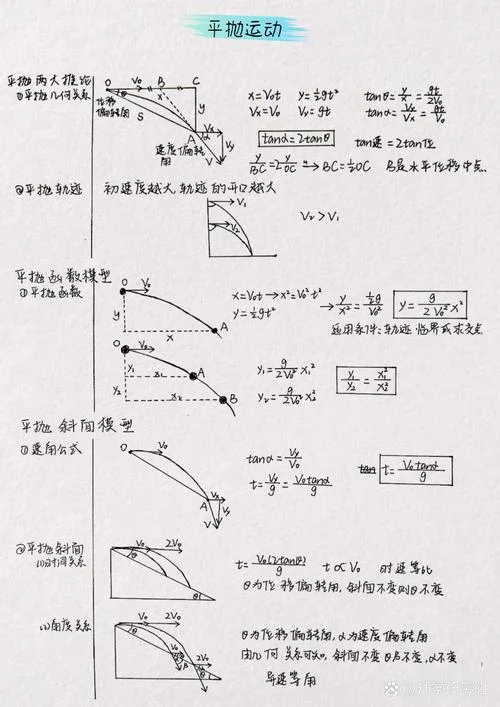 平抛运动
平抛两大推论
①平抛几何关系
O V₀ B C
θ x y
位移偏转角 S
A Vx α
速度偏转角 V Vy
x=V₀t y=½gt² tanθ=y/x=gt/2V₀
Vx=V₀ Vy=gt tanα=Vy/Vx=gt/V₀
tanα=2tanθ tan速=2tan位
y/BC=2y/OC → BC=½OC B是水平位移中点.
②平抛轨迹 初速度越大,轨迹的开口越大
V₁
V₂
V₂>V₁
平抛函数模型
①平抛函数
O V₀
y x A
x=V₀t→x²=V₀²t²
y=½gt²
→ y/x²=½g/V₀² y=g/2V₀² x²
适用条件:轨迹临界或求交点
O V₀
y₁ x₁ A
y₂ x₂ B
y₁=g/2V₀² x₁²
y₂=g/2V₀² x₂²
y₁/y₂=x₁²/x₂²
平抛斜面模型
①速角公式
O V₀
A Vx
V Vy
tanα=Vy/V₀
t=Vy/g=V₀tanα/g
tan t=V₀tanα/g
②平抛斜面
(1)时间关系
V₀ 2V₀
θ
t=V₀(2tanθ)/g t∝V₀ 时速等比
θ为位移偏转角,斜面不变则θ不变
(2)角度关系
V₀ 2V₀
θ
V₀ 2V₀
θ为位移偏转角,α为速度偏转角
由几何关系可知,斜面不变θ不变,α不变
异速等角